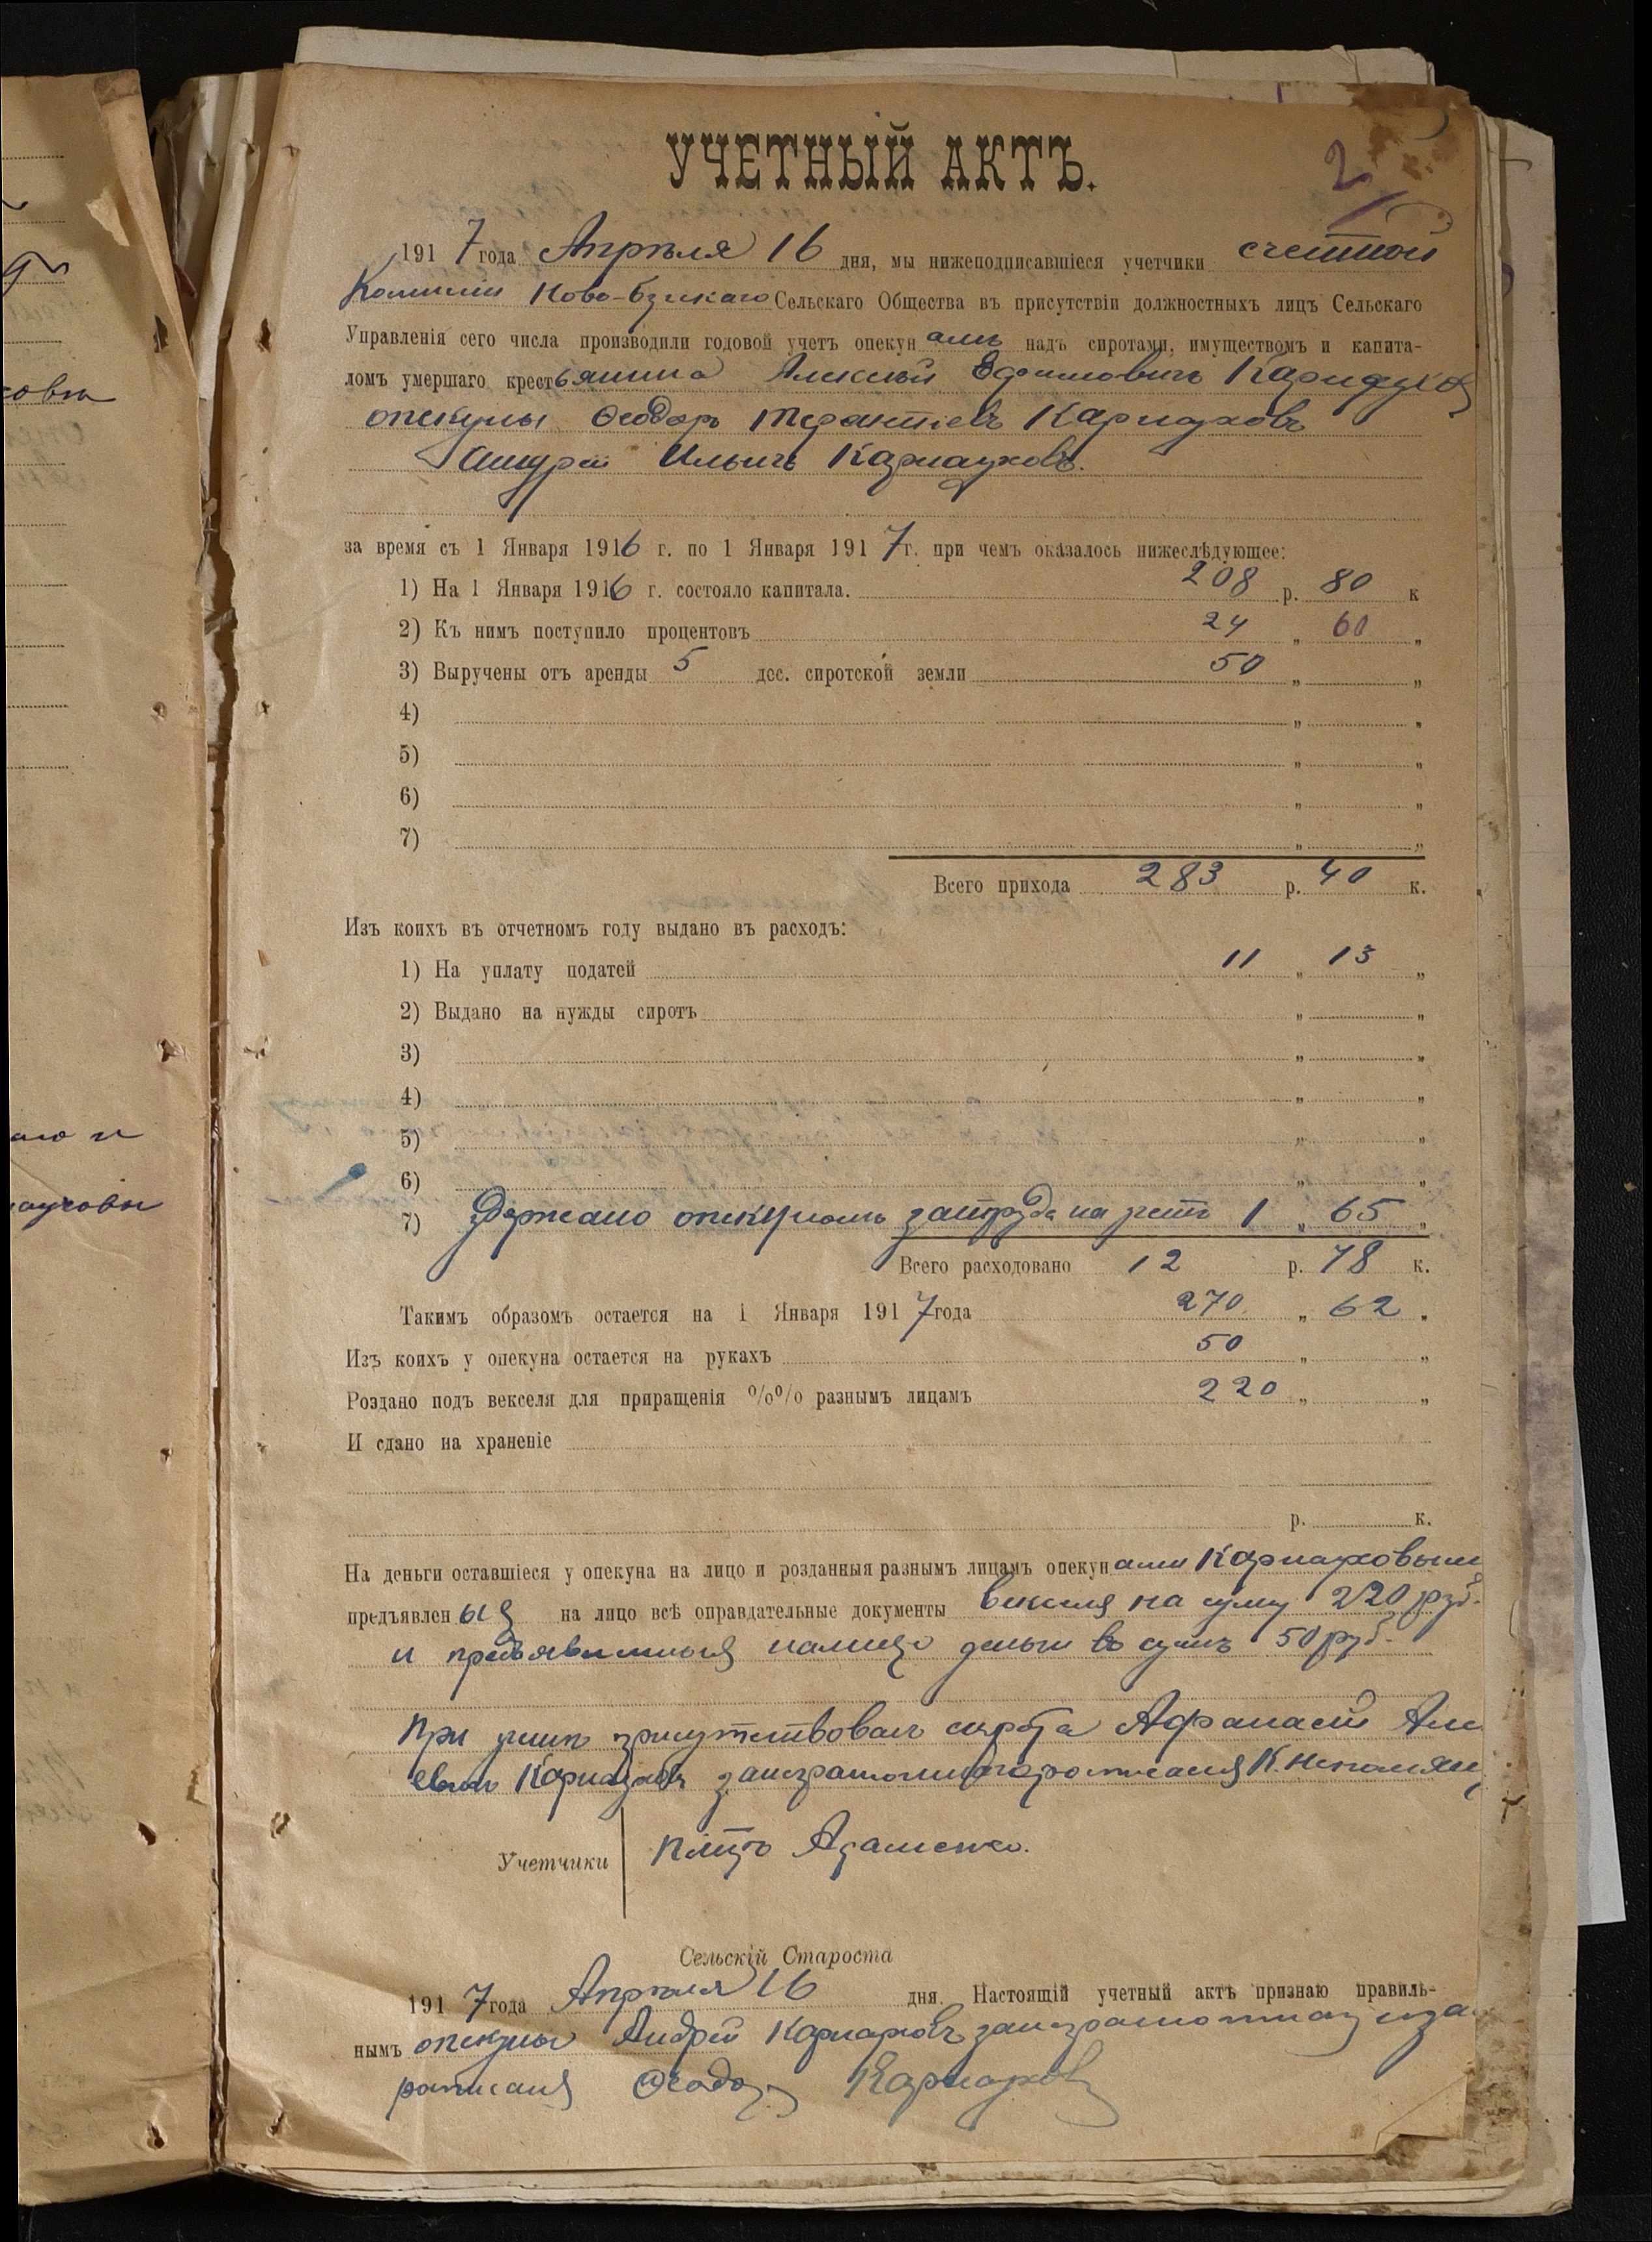 овы
аго и
ауховы
2
УЧЕТНЫЙ АКТЪ.
1917 года Апрѣля 16 дня, мы нижеподписавшіеся учетчики счетной
Комиссіи Ново-Бугскаго Сельскаго Общества въ присутствіи должностныхъ лицъ Сельскаго
Управленія сего числа производили годовой учетъ опекунамъ надъ сиротами, имуществомъ и капита-
ломъ умершаго крестьянина Алексѣй Ефимовичъ Карнаухов
опекуны Ѳеодоръ Терентіевъ Карнауховъ
Андрей Ильичъ Карнауховъ.
за время съ 1 Января 1916 г. по 1 Января 1917 г. при чемъ оказалось нижеслѣдующее:
1) На 1 Января 1916 г. состояло капитала. 208 р. 80 к
2) Къ нимъ поступило процентовъ 24 „ 60 „
3) Выручены отъ аренды 5 дес. сиротской земли 50 „ „
4) „ „
5) „ „
6) „ „
7) „ „
Всего прихода 283 р. 40 к.
Изъ коихъ въ отчетномъ году выдано въ расходъ:
1) На уплату податей 11 „ 13 „
2) Выдано на нужды сиротъ „ „
3) „ „
4) „ „
5) „ „
6) „ „
7) Здержано опекуномъ за труда на 1 „ 65 „
Всего расходовано 12 р. 78 к.
Такимъ образомъ остается на 1 Января 1917 года 270 „ 62 „
Изъ коихъ у опекуна остается на рукахъ 50 „ „
Роздано подъ векселя для приращенія %% разнымъ лицамъ 220 „ „
И сдано на храненіе
р. к.
На деньги оставшіеся у опекуна на лицо и розданныя разнымъ лицамъ опекунами Карнауховыми
предъявлены на лицо всѣ оправдательные документы векселя на суму 220 руб.
и предъявленыя налицо деньги въ сумѣ 50 руб.
При учетѣ присутствовалъ сирота Афанасій Але
евичъ Карнауховъ заинграмотнаго росписался К. Непомящ
Учетчики Петръ Адаменко.
Сельскій Староста
1917 года Апрѣля 16 дня. Настоящій учетный актъ признаю правиль-
нымъ опекуны Андрей Карнауховъ
росписался Ѳеодоръ Карнауховъ